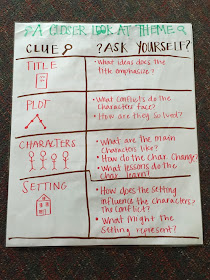 A CLOSER LOOK AT THEME
CLUE
? ASK YOURSELF?
TITLE
• What ideas does the
title emphasize?
PLOT
• What conflicts do the
characters face?
• How are they solved?
CHARACTERS
• What are the main
characters like?
• How do the char. change?
• What lessons do the
char. learn?
SETTING
• How does the setting
influence the characters?
The conflict?
• What might the
setting represent?